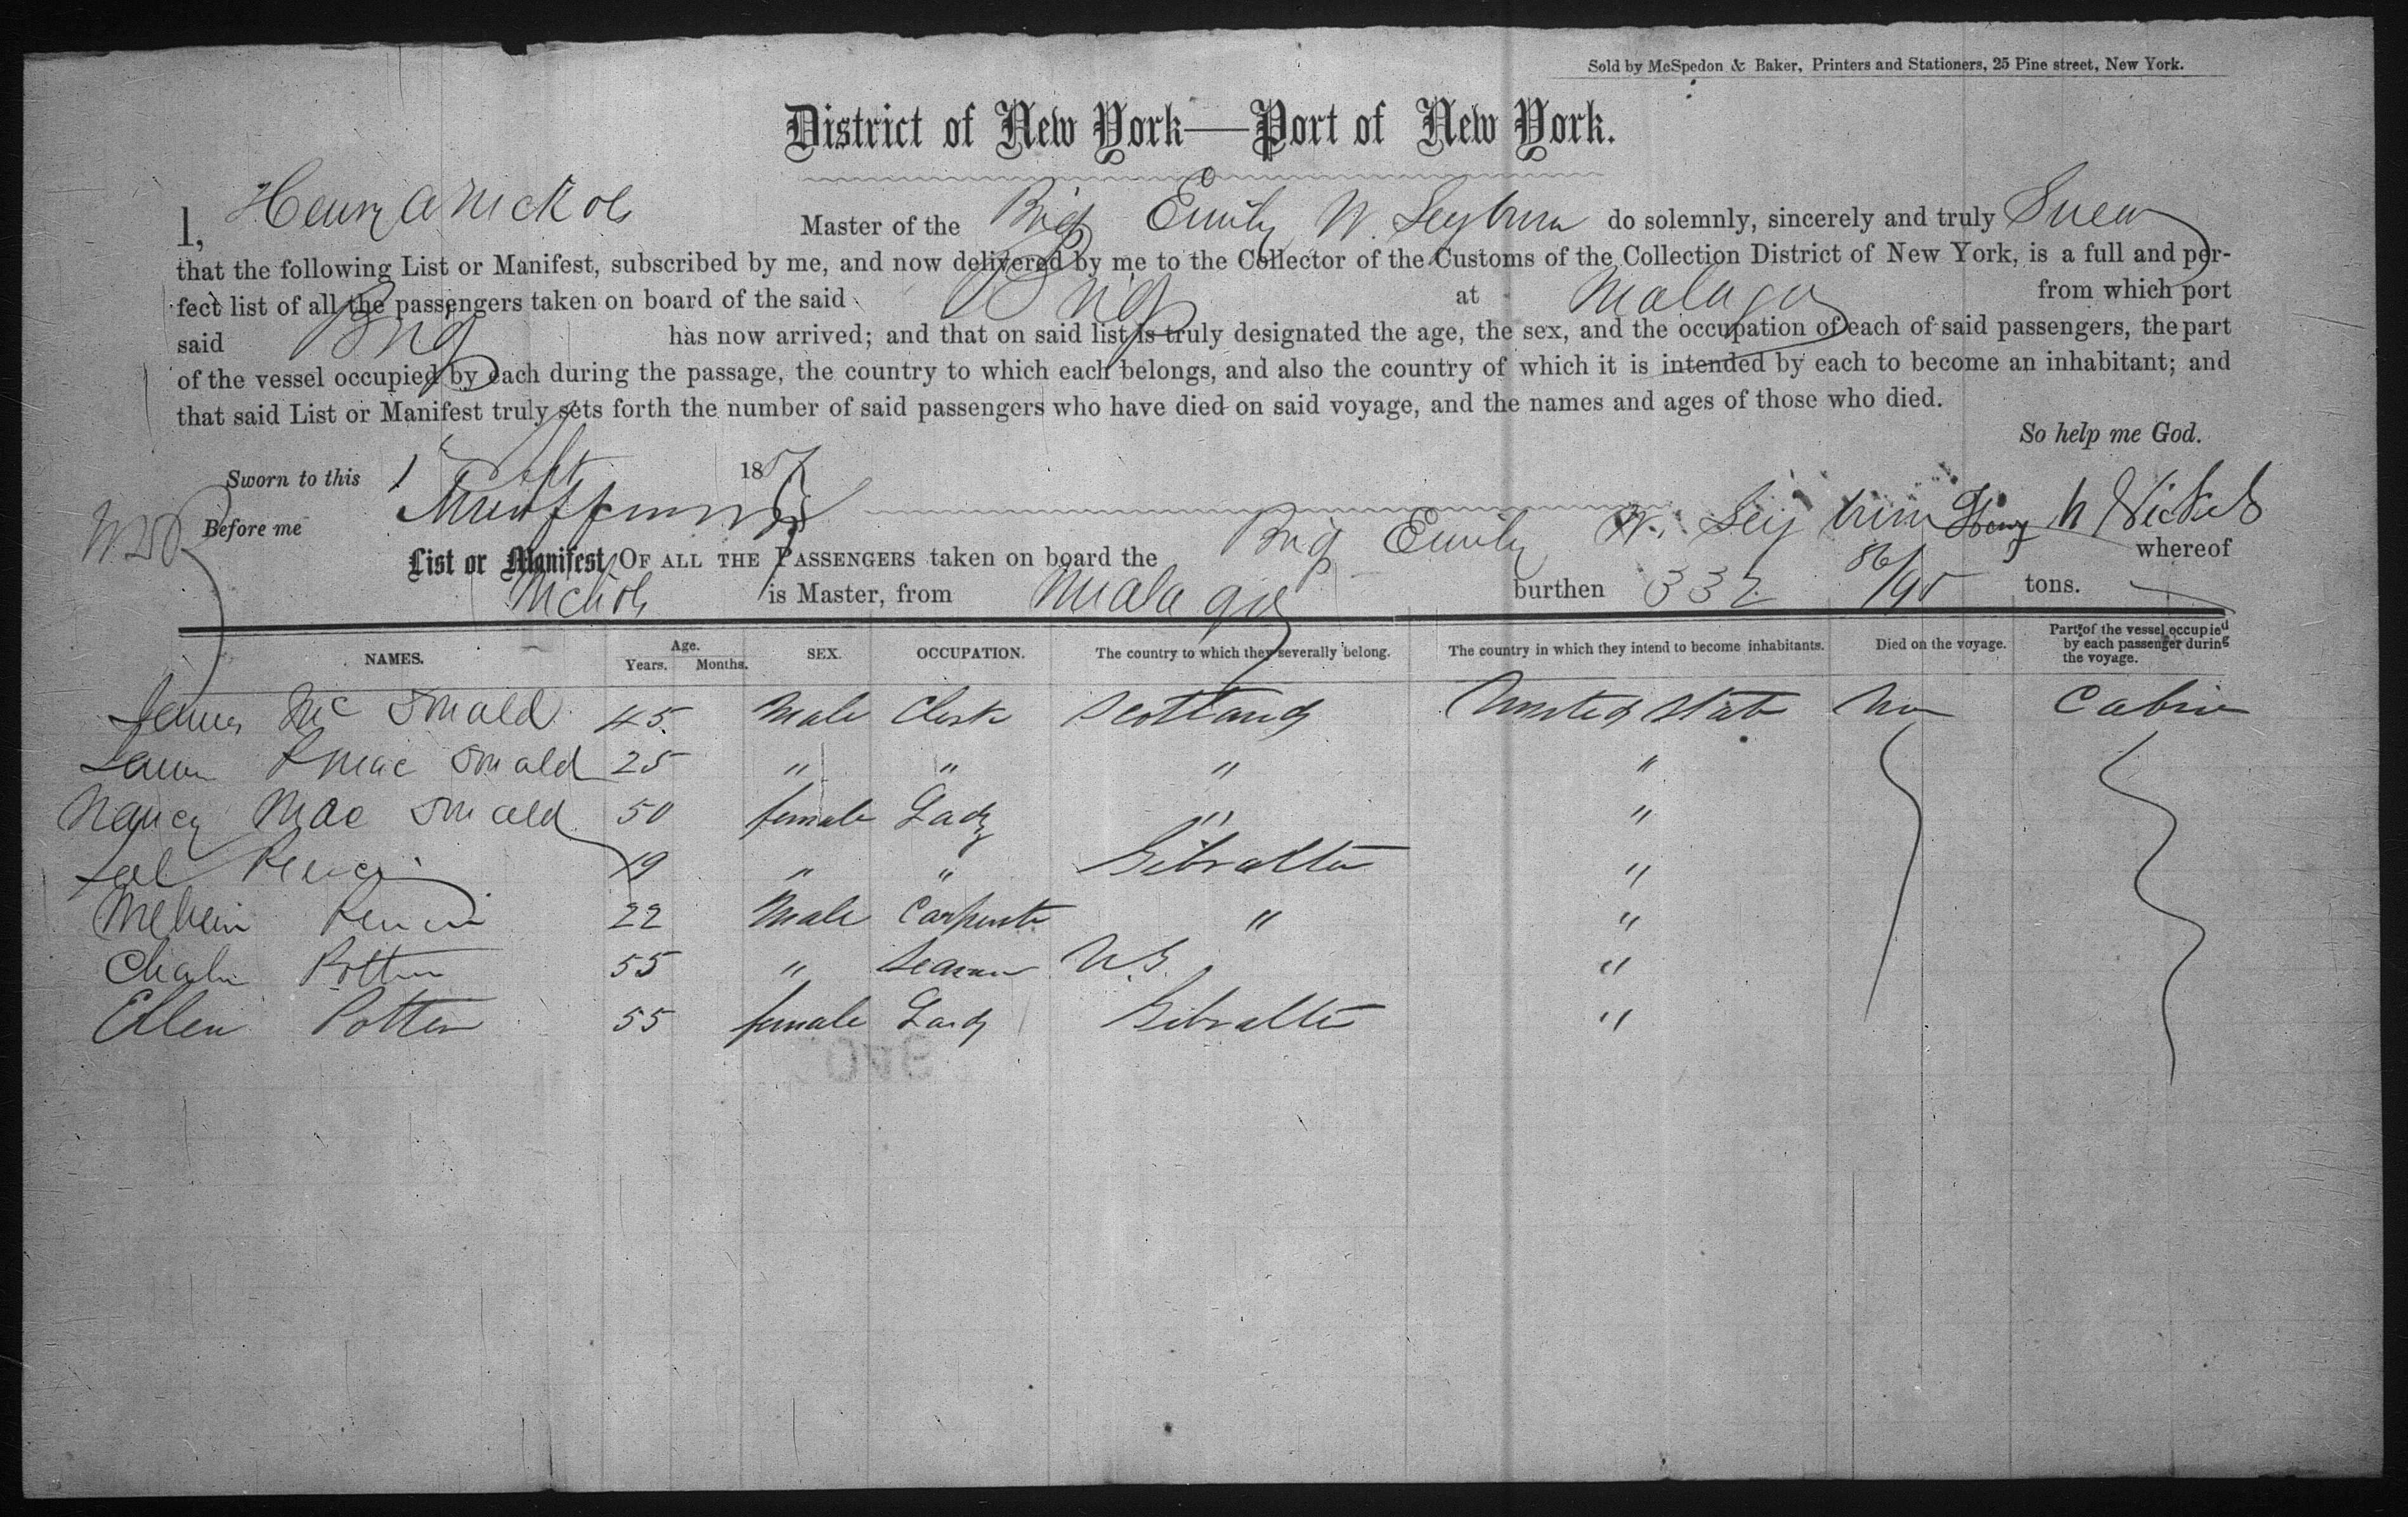 Sold by McSpedon & Baker, Printers and Stationers, 25 Pine street, New York.
District of New York—Port of New York.
I, Henry A Nickols Master of the Brig Emily W. Seyburn do solemnly, sincerely and truly Swear
that the following List or Manifest, subscribed by me, and now delivered by me to the Collector of the Customs of the Collection District of New York, is a full and per-
fect list of all the passengers taken on board of the said Brig at Malaga from which port
said Brig has now arrived; and that on said list is truly designated the age, the sex, and the occupation of each of said passengers, the part
of the vessel occupied by each during the passage, the country to which each belongs, and also the country of which it is intended by each to become an inhabitant; and
that said List or Manifest truly sets forth the number of said passengers who have died on said voyage, and the names and ages of those who died.
So help me God.
Sworn to this 1 185
Before me Henry Nickels
List or Manifest OF ALL THE PASSENGERS taken on board the Brig Emily W. Seyburn whereof
Nickols is Master, from Malaga burthen 332 86/95 tons.
NAMES. Age. Years. Months. SEX. OCCUPATION. The country to which they severally belong. The country in which they intend to become inhabitants. Died on the voyage. Part of the vessel occupied by each passenger during the voyage.
James Mc Donald 45 Male Clerk Scotland United State No Cabin
Mac Donald 25 " " " "
Nancy Mac Donald 50 female Lady " "
19 " " Gibralter "
22 Male Carpenter " "
Charles Potter 55 " Seaman U.S. "
Ellen Potter 55 female Lady Gibralter "